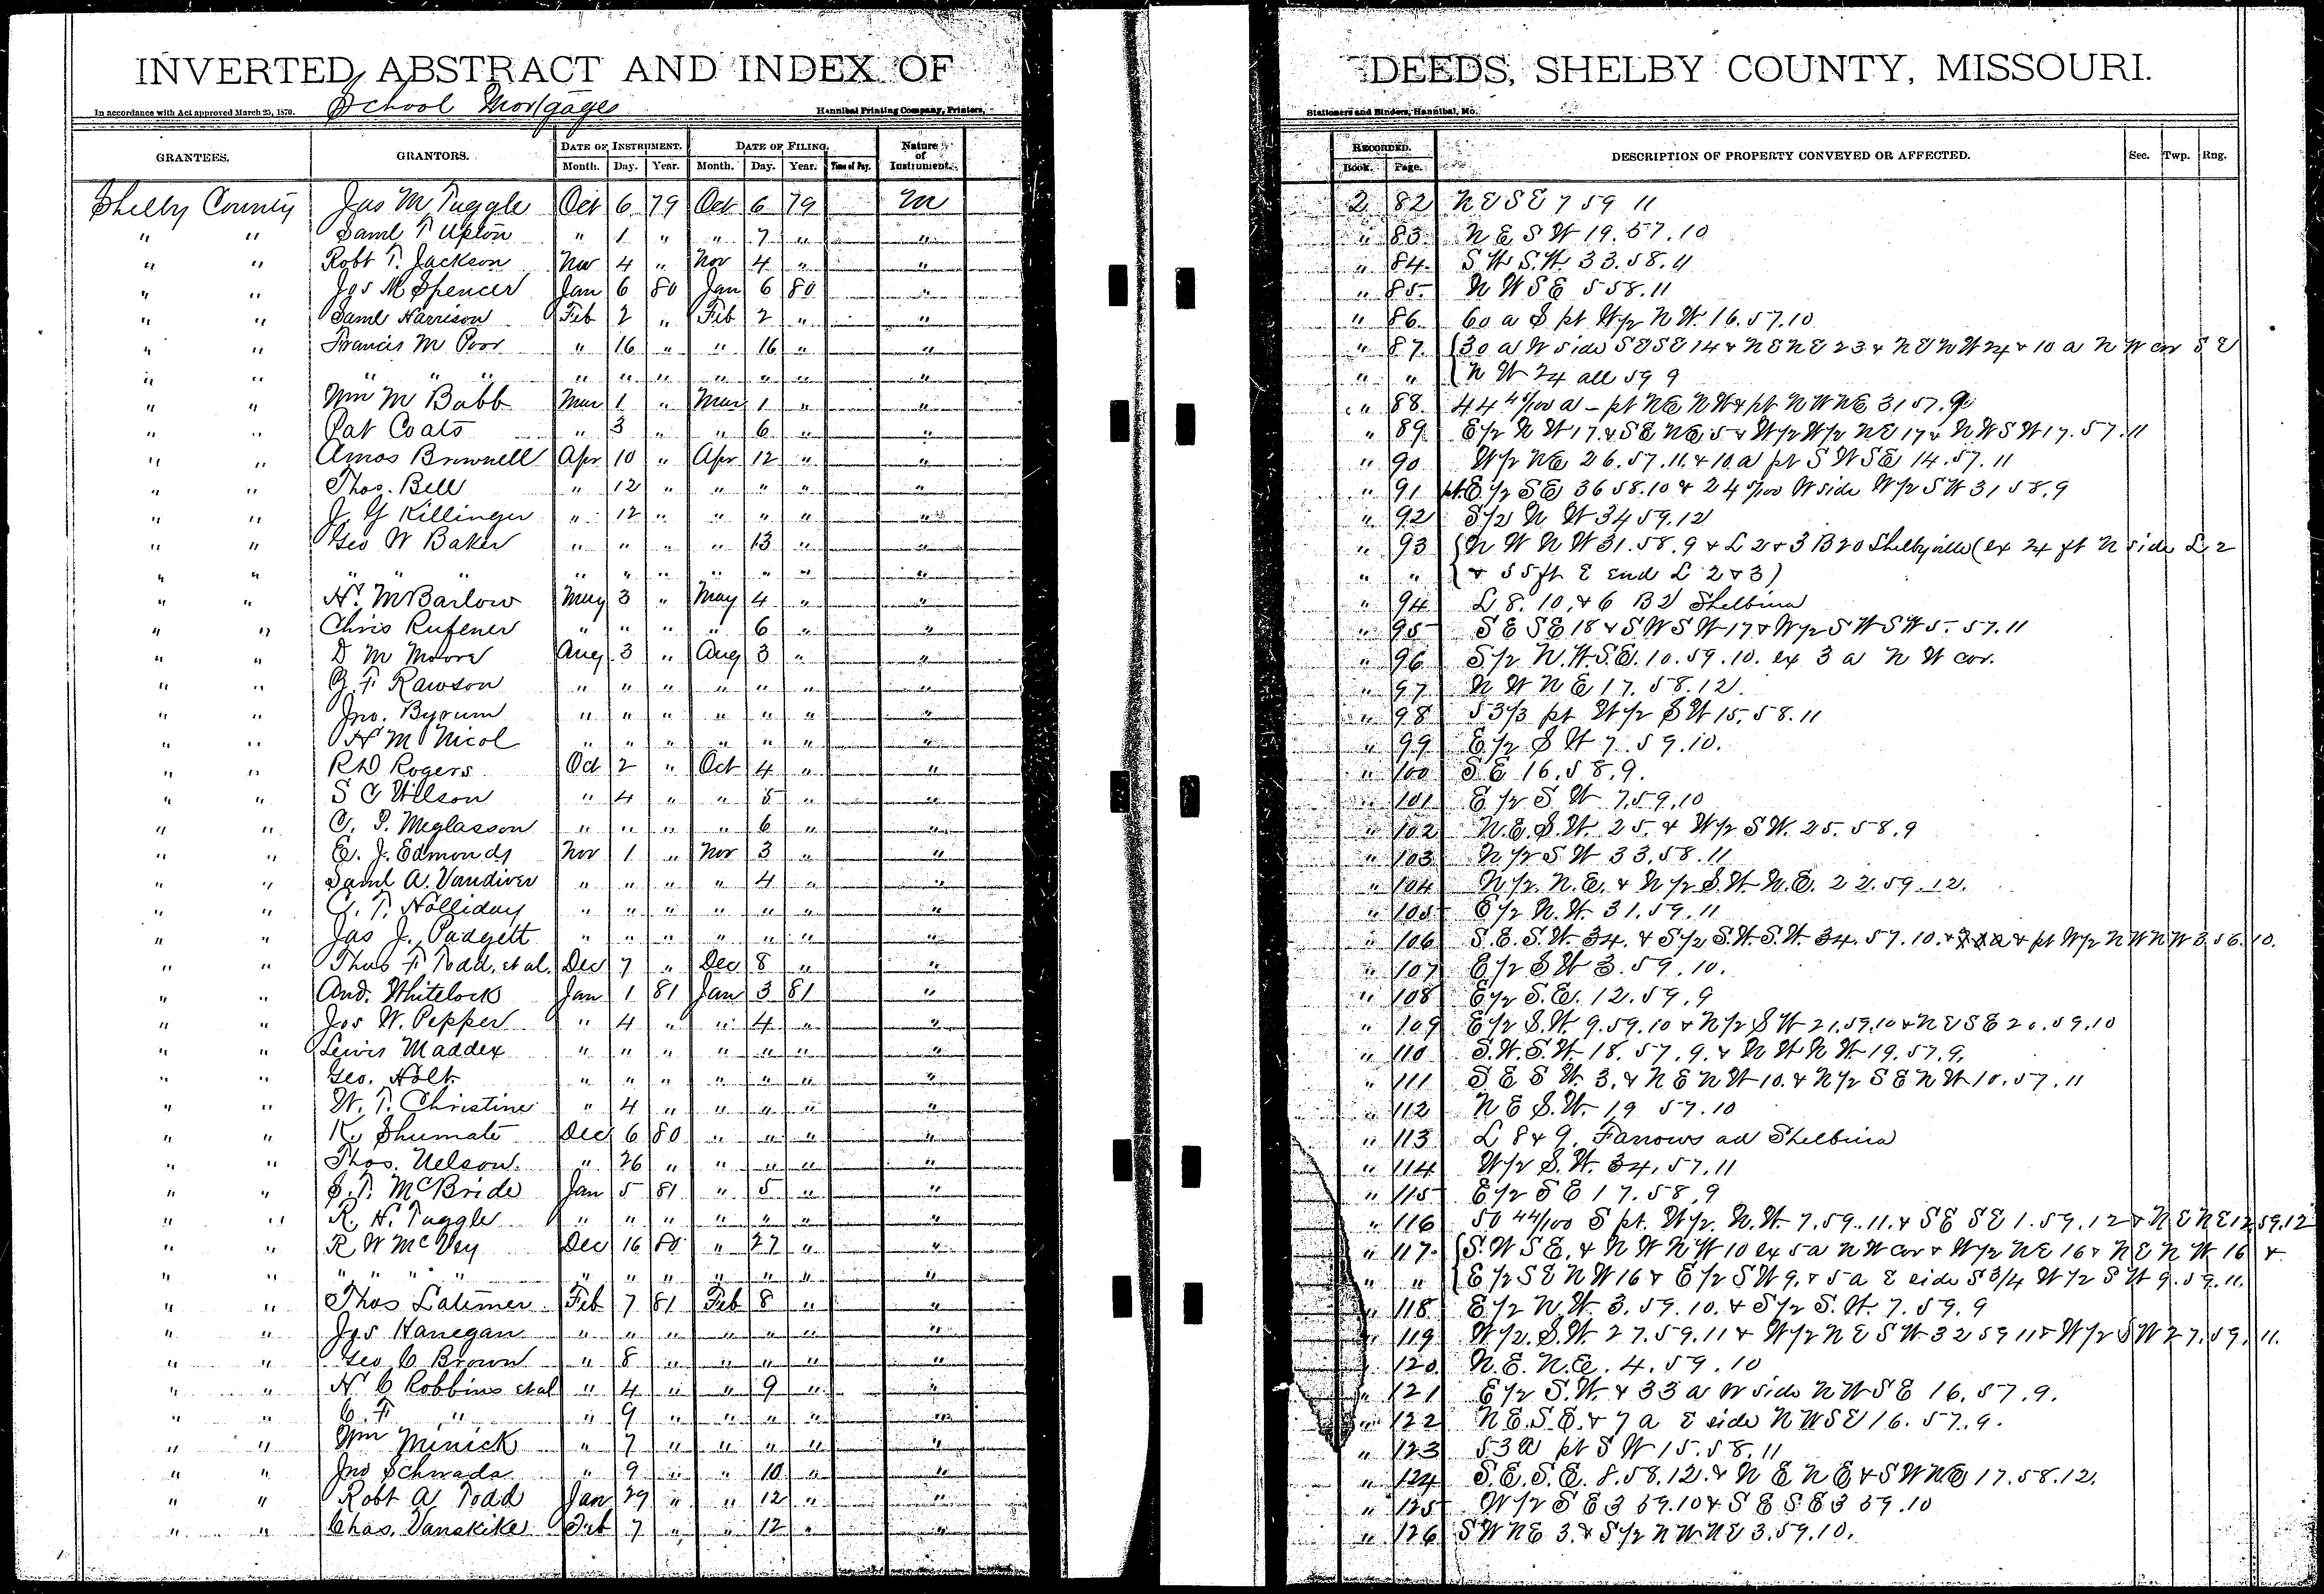 INVERTED ABSTRACT AND INDEX OF DEEDS, SHELBY COUNTY, MISSOURI.
In accordance with Act approved March 25, 1870. School Mortgages Hannibal Printing Company, Printers, Stationers and Binders, Hannibal, Mo.
GRANTEES. GRANTORS. DATE OF INSTRUMENT. DATE OF FILING. Nature of Instrument. RECORDED. DESCRIPTION OF PROPERTY CONVEYED OR AFFECTED. Sec. Twp. Rng.
Month. Day. Year. Month. Day. Year. Time of Day. Book. Page.
Shelby County Jas M Tuggle Oct 6 79 Oct 6 79 M 2 82 N E S E 7 59 11
" " Saml T Upton " 1 " " 7 " " " 83 N E S W 19. 57. 10
" " Robt T. Jackson Nov 4 " Nov 4 " " " 84 S W S.W. 33. 58. 11
" " Jos M Spencer Jan 6 80 Jan 6 80 " " 85 N W S E 5 58. 11
" " Saml Harrison Feb 2 " Feb 2 " " " 86 60 a S pt W/2 N W. 16. 57. 10
" " Francis M Poor " 16 " " 16 " " " 87 (30 a W side S E S E 14 & N E N E 23 & N E N W 24 & 10 a N W cor S E
" " " " " " " " " " " " " " (N W 24 all 59 9
" " Wm M Babb Mar 1 " Mar 1 " " " 88 44 45/100 a - pt N E N W & pt N W N E 31 57. 9
" " Pat Coats " 3 " " 6 " " " 89 E/2 N W 17 & S E N E 5 & W/2 W/2 N E 17 & N W S W 17. 57. 11
" " Amos Brownell Apr 10 " Apr 12 " " " 90 W/2 N E 26. 57. 11. & 10 a pt S W S E 14. 57. 11
" " Thos. Bell " 12 " " " " " " 91 pt. E/2 S E 36 58. 10 & 24 5/100 W side W/2 S W 31 58. 9
" " J. G Killinger " 12 " " " " " " 92 S/2 N W 34 59. 12
" " Geo W Baker " " " " 13 " " " 93 (N W N W 31. 58. 9 & L 2 & 3 B 20 Shelbyville (ex 24 ft N side L 2
" " " " " " " " " " " " " " (& 55 ft E end L 2 & 3)
" " H. M Barlow May 3 " May 4 " " " 94 L 8. 10. & 6 B 2 Shelbina
" " Chris Rufener " " " " 6 " " " 95 S E S E 18 & S W S W 17 & W/2 S W S W 5. 57. 11
" " D M Moore Aug 3 " Aug 3 " " " 96 S/2 N. W. S. E. 10. 59. 10. ex 3 a N W cor.
" " F Rawson " " " " " " " " 97 N W N E 17. 58. 12.
" " Jno. Byrum " " " " " " " " 98 53/3 pt W/2 S W 15. 58. 11
" " H M Nicol " " " " " " " " 99 E/2 S W 7. 59. 10.
" " R D Rogers Oct 2 " Oct 4 " " " 100 S E 16. 58. 9.
" " S C Wilson " 4 " " 5 " " " 101 E/2 S W 7. 59. 10
" " C. P. Meglasson " " " " 6 " " " 102 N. E. S. W. 25. & W/2 S W. 25. 58. 9
" " E. J. Edmonds Nov 1 " Nov 3 " " " 103 N/2 S W 33. 58. 11
" " Saml A. Vandiver " " " " 4 " " " 104 N/2. N. E. & N/2 S. W. N. E. 22. 59. 12.
" " G. T. Holliday " " " " " " " " 105 E/2 N. W. 31. 59. 11
" " Jas J. Padgett " " " " " " " " 106 S. E. S. W. 34. & S/2 S. W. S. W. 34. 57. 10. & pt W/2 N W N W 3. 56. 10.
" " Thos F Todd, et al. Dec 7 " Dec 8 " " " 107 E/2 S W 3. 59. 10.
" " And. Whitelock Jan 1 81 Jan 3 81 " " 108 E/2 S. E. 12. 59. 9
" " Jos W. Pepper " 4 " " 4 " " " 109 E/2 S. W. 9. 59. 10 & N/2 S W 21. 59. 10 & N E S E 20. 59. 10
" " Lewis Maddex " " " " " " " " 110 S. W. S. W. 18. 57. 9. & N W N W 19. 57. 9.
" " Geo. Holt " " " " " " " " 111 S E S W. 3. & N E N W 10. & N/2 S E N W 10. 57. 11
" " W. T. Christine " 4 " " " " " " 112 N E S. W. 19 57. 10
" " K. Shumate Dec 6 80 " " " " " 113 L 8 & 9. Farrows ad Shelbina
" " Thos. Nelson. " 26 " " " " " " 114 W/2 S. W. 34. 57. 11
" " S. T. McBride Jan 5 81 " 5 " " " 115 E/2 S E 17. 58. 9
" " R. H. Tuggle " " " " " " " " 116 50 44/100 S pt. W/2. N. W. 7. 59. 11. & S E S E 1. 59. 12 & N E N E 12. 59. 12
" " R W McVey Dec 16 80 " 27 " " " 117 (S. W S E. & N W N W 10 ex 5 a N W cor & W/2 N E 16 & N E N W 16 &
" " " " " " " " " " " " " " (E/2 S E N W 16 & E/2 S W 9. & 5 a E side S 3/4 W/2 S W 9. 59. 11.
" " Thos Latimer Feb 7 81 Feb 8 " " " 118 E/2 N. W. 3. 59. 10. & S/2 S. W. 7. 59. 9
" " Jas Hanegan " " " " " " " " 119 W/2. S. W. 27. 59. 11 & W/2 N E S W 32 59 11 & W/2 S W 27. 59. 11.
" " Geo C Brown " 8 " " " " " " 120 N. E. N. E. 4. 59. 10
" " N C Robbins et al " 4 " " 9 " " " 121 E/2 S. W. & 33 a W side N W S E 16. 57. 9.
" " C. F. " " 9 " " " " " " 122 N. E. S. E. & 7 a E side N W S E 16. 57. 9.
" " Wm Minick " 7 " " " " " " 123 53 a pt S W 15. 58. 11
" " Jno Schwada " 9 " " 10 " " " 124 S. E. S. E. 8. 58. 12. & N E N E & S W N E 17. 58. 12.
" " Robt A Todd Jan 29 " " 12 " " " 125 W/2 S E 3 59. 10 & S E S E 3 59. 10
" " Chas. Vanskike Feb 7 " " 12 " " " 126 S W N E 3. & S/2 N W N E 3. 59. 10.